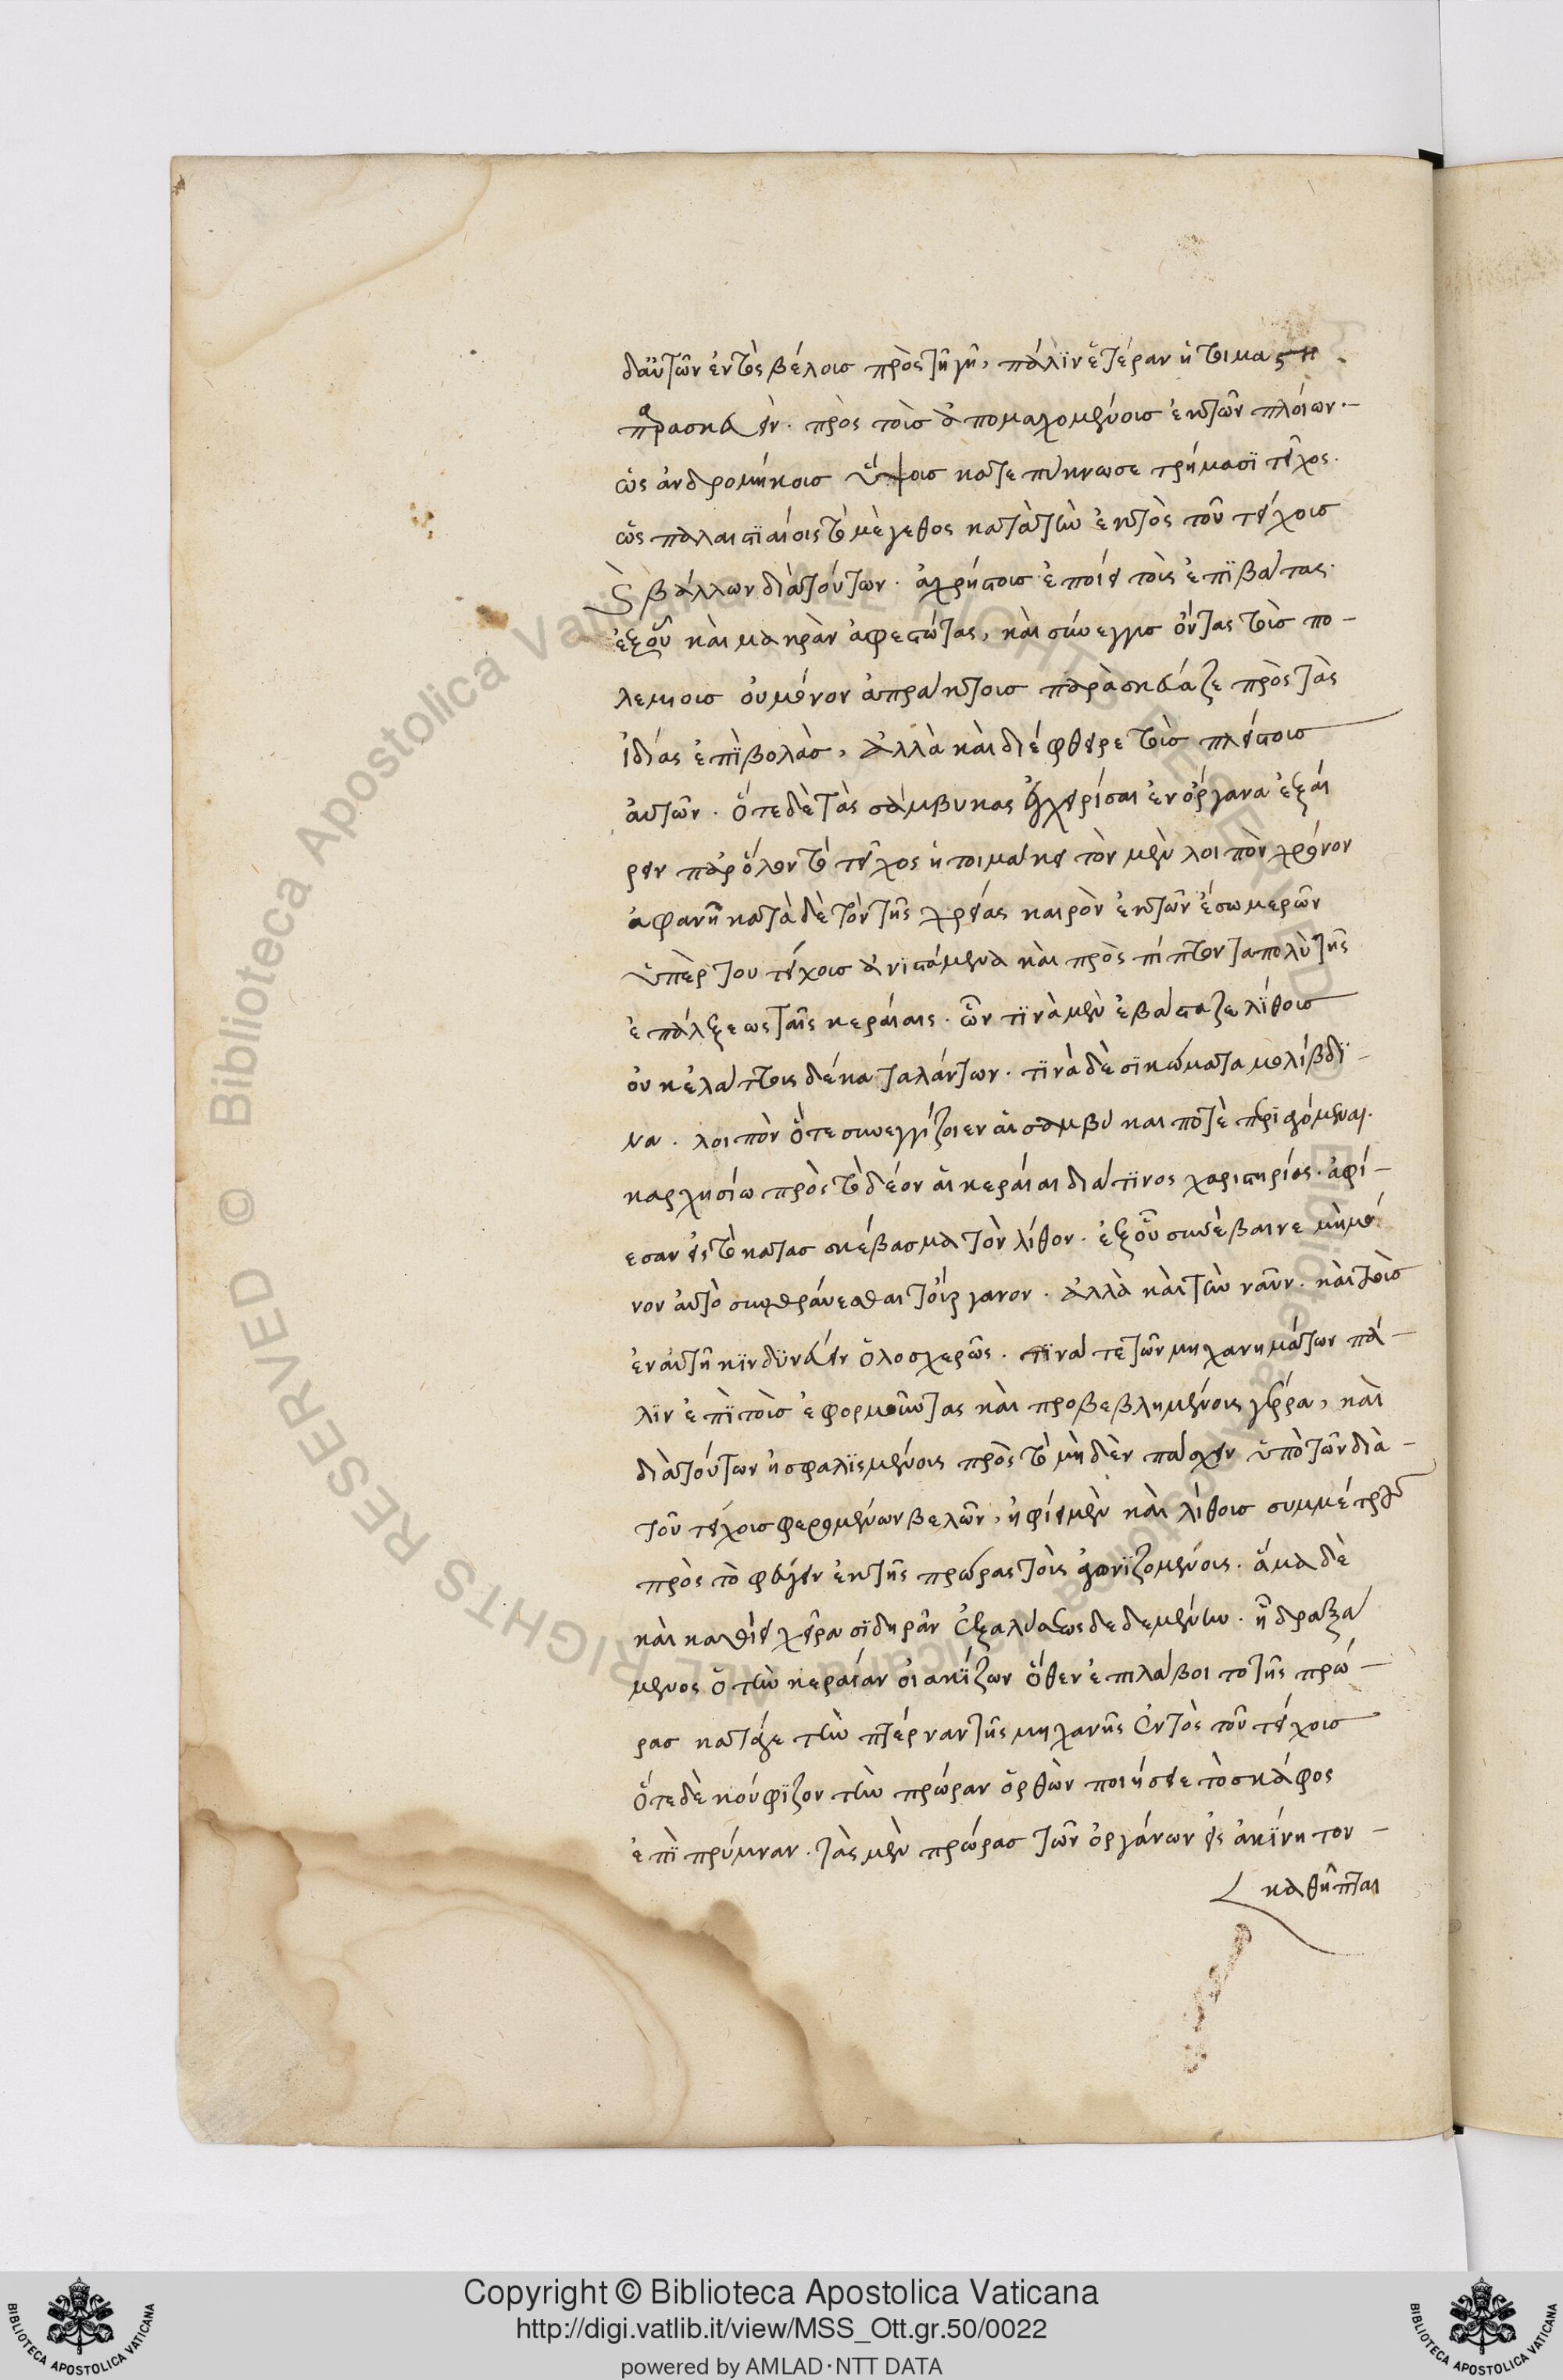 δαὐτῶν ἐντὸς βέλους πρὸς τῆ γῆ, πάλϊν ἑτέραν ἡτοιμας
παρασκευὴν. πρὸς τοὺς ἀπομαχομένους ἐκ τῶν πλοίων.
ὡς ἀνδρομήκους ὕψους κατεπύκνωσε τρήμασϊ τεῖχος.
ὡς παλαιστϊαίοις τὸ μέγεθος κατὰ τὴν ἐκτὸς τοῦ τείχους
βάλλων διὰ τούτων. ἀχρήστους ἐποίει τοὺς ἐπϊβάτας.
ἐξοὗ καὶ μακρὰν ἀφεστῶτας, καὶ σύνεγγυς ὄντας τοὺς πο-
λεμιους οὐ μόνον ἀπράκτους παρὰσκεύαζε πρὸς τὰς
ἰδίας ἐπϊβολὰς, ἀλλὰ καὶ διέφθειρε τοὺς πλείστους
αὐτῶν. ὅτε δὲ τὰς σάμβυκας ἐγχειρίσαι ἐν ὄργανα ἐξαί
ρειν παρ ὅλον τὸ τεῖχος ἡτοιμάκει τὸν μὲν λοιπὸν χρόνον
ἀφανῆ κατὰ δὲ τὸν τῆς χρείας καιρὸν ἐκ τῶν ἔσω μερῶν
ὑπὲρ του τείχους ἀνιστάμενα καὶ πρὸς πίπτοντα πολὺ τῆς
ἐπάλξεως ταῖς κεραίαις. ὧν τϊνὰ μὲν ἐβάσταζε λϊθους
οὐκ ἐλάττους δέκα ταλάντων. τϊνὰ δὲ σϊκώματα μολίβδϊ-
να. λοιπὸν ὅτε συνεγγίζοιεν αἱ σαμβύκαι ποτὲ περϊαγόμεναι.
καρχησίω πρὸς τὸ δέον αἱ κεραίαι διά τϊνος χαριστηρίας. ἀφί-
εσαν εἰς τὸ κατασκέβασμα τὸν λίθον. ἐξοὗ συνέβαινε μὴ μό
νον αὐτὸ συνθράυεσθαι τοὔργανον. ἀλλὰ καὶ τὴν ναῦν. καὶ τοὺς
ἐν αὐτῆ κϊνδϋνεύειν ὁλοσχερῶς. τϊνά τε τῶν μηχανημάτων πά-
λϊν ἐπϊ τοὺς ἐφορμῶντας καὶ προβεβλημένους γέρρα, καὶ
διὰ τούτων ἠσφαλϊσμένους πρὸς τὸ μηδὲν πάσχειν ὑπὸ τῶν διὰ-
τοῦ τείχους φερομένων βελῶν, ἠφίει μὲν καὶ λίθους συμμέτρους
πρὸς τὸ φεύγειν ἐκ τῆς πρώρας τοὺς ἀγωνϊζομένους. ἅμα δὲ
καὶ καθίει χεῖρα σϊδηρᾶν ἐξ ἁλύσεως δεδεμένην. ἧ δραξά
μενος ὁ τὴν κεραίαν οἰακϊζων ὅθεν ἐπιλάβοιτο τῆς πρώ-
ρας κατάγε τὴν πτέρναν τῆς μηχανῆς ἐντὸς τοῦ τείχους
ὅτε δὲ κούφϊζον τὴν πρώραν ὀρθὼν ποιήσειε τὸ σκάφος
ἐπϊ πρύμναν. τὰς μὲν πρώρας τῶν ὀργάνων εἰς ἀκϊνητον-
καθῆπται
Copyright © Biblioteca Apostolica Vaticana
http://digi.vatlib.it/view/MSS_Ott.gr.50/0022
powered by AMLAD·NTT DATA